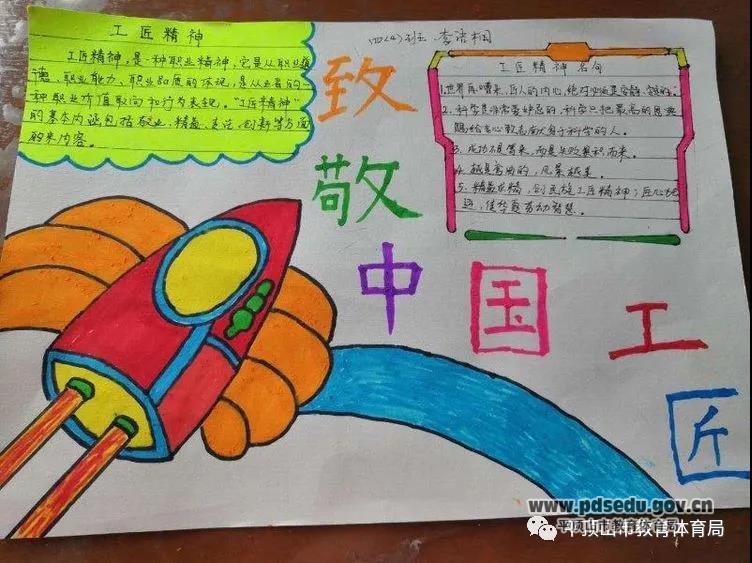 工匠精神
工匠精神，是一种职业精神，它是从职业道
德、职业能力、职业品质的体现，是从业者的一
种职业价值取向和行为表现，“工匠精神”
的基本内涵包括敬业、精益、专注、创新等方面
的来内容。
四(4)班
致
敬
中
国
工
匠
工匠精神名句
1.世界再嘈杂，匠人的内心，绝对必须是安静、安定的。
2.科学是非常爱妒忌的，科学只把最高的恩典
赐给专心致志献身于科学的人。
3.成功不是
而是
积而来。
4.越是弯曲的，风景越美。
5.精益求精，创民族工匠精神；匠心
，传华夏劳动智慧。
www.pdsedu.gov.cn
平顶山市教育体育局
平顶山市教育体育局